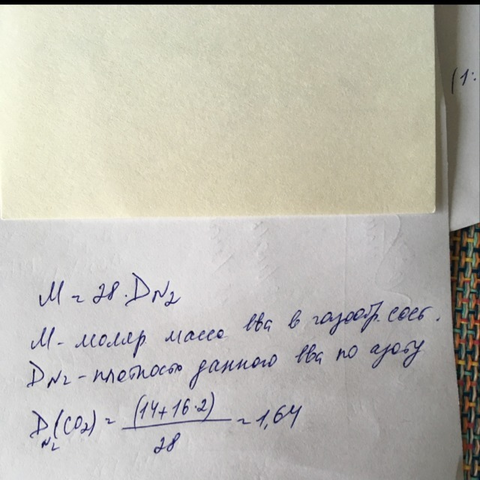 (1:
M = 28 · D N2
M - моляр масса вва в газообр. сост.
D N2 - плотность данного вва по азоту
D N2 (CO2) = (14+16·2) / 28 = 1,64